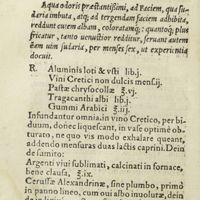 Aqua odoris præstantissimi, ad faciem, qua su-
daria imbuta, atq; ad tergendam faciem adhibita,
reddunt eadem albam, coloratamq;: quantoq; plus
fricatur, tanto venustior redditur, seruant autem
eam uim sudaria, per menses sex, ut experientia
docuit.
R. Aluminis loti & vsti lib.j.
Vini Cretici non dulcis mensij.
Pastæ chrysocollæ ℥.vj.
Tragacanthi albi lib.j.
Gummi Arabici ℥.iij.
Infundantur omnia in vino Cretico, per bi-
duum, donec liquescant, in vase optime ob-
turato, ne quo vis modo exhalare queant,
addendo mensuras duas lactis caprini. Dein
de sumito:
Argenti viui sublimati, calcinati in fornace,
bene clausa, ℥.ix.
Cerussæ Alexandrinæ, sine plumbo, primo
in panno lineo, cum oui albo inuolutæ, dein